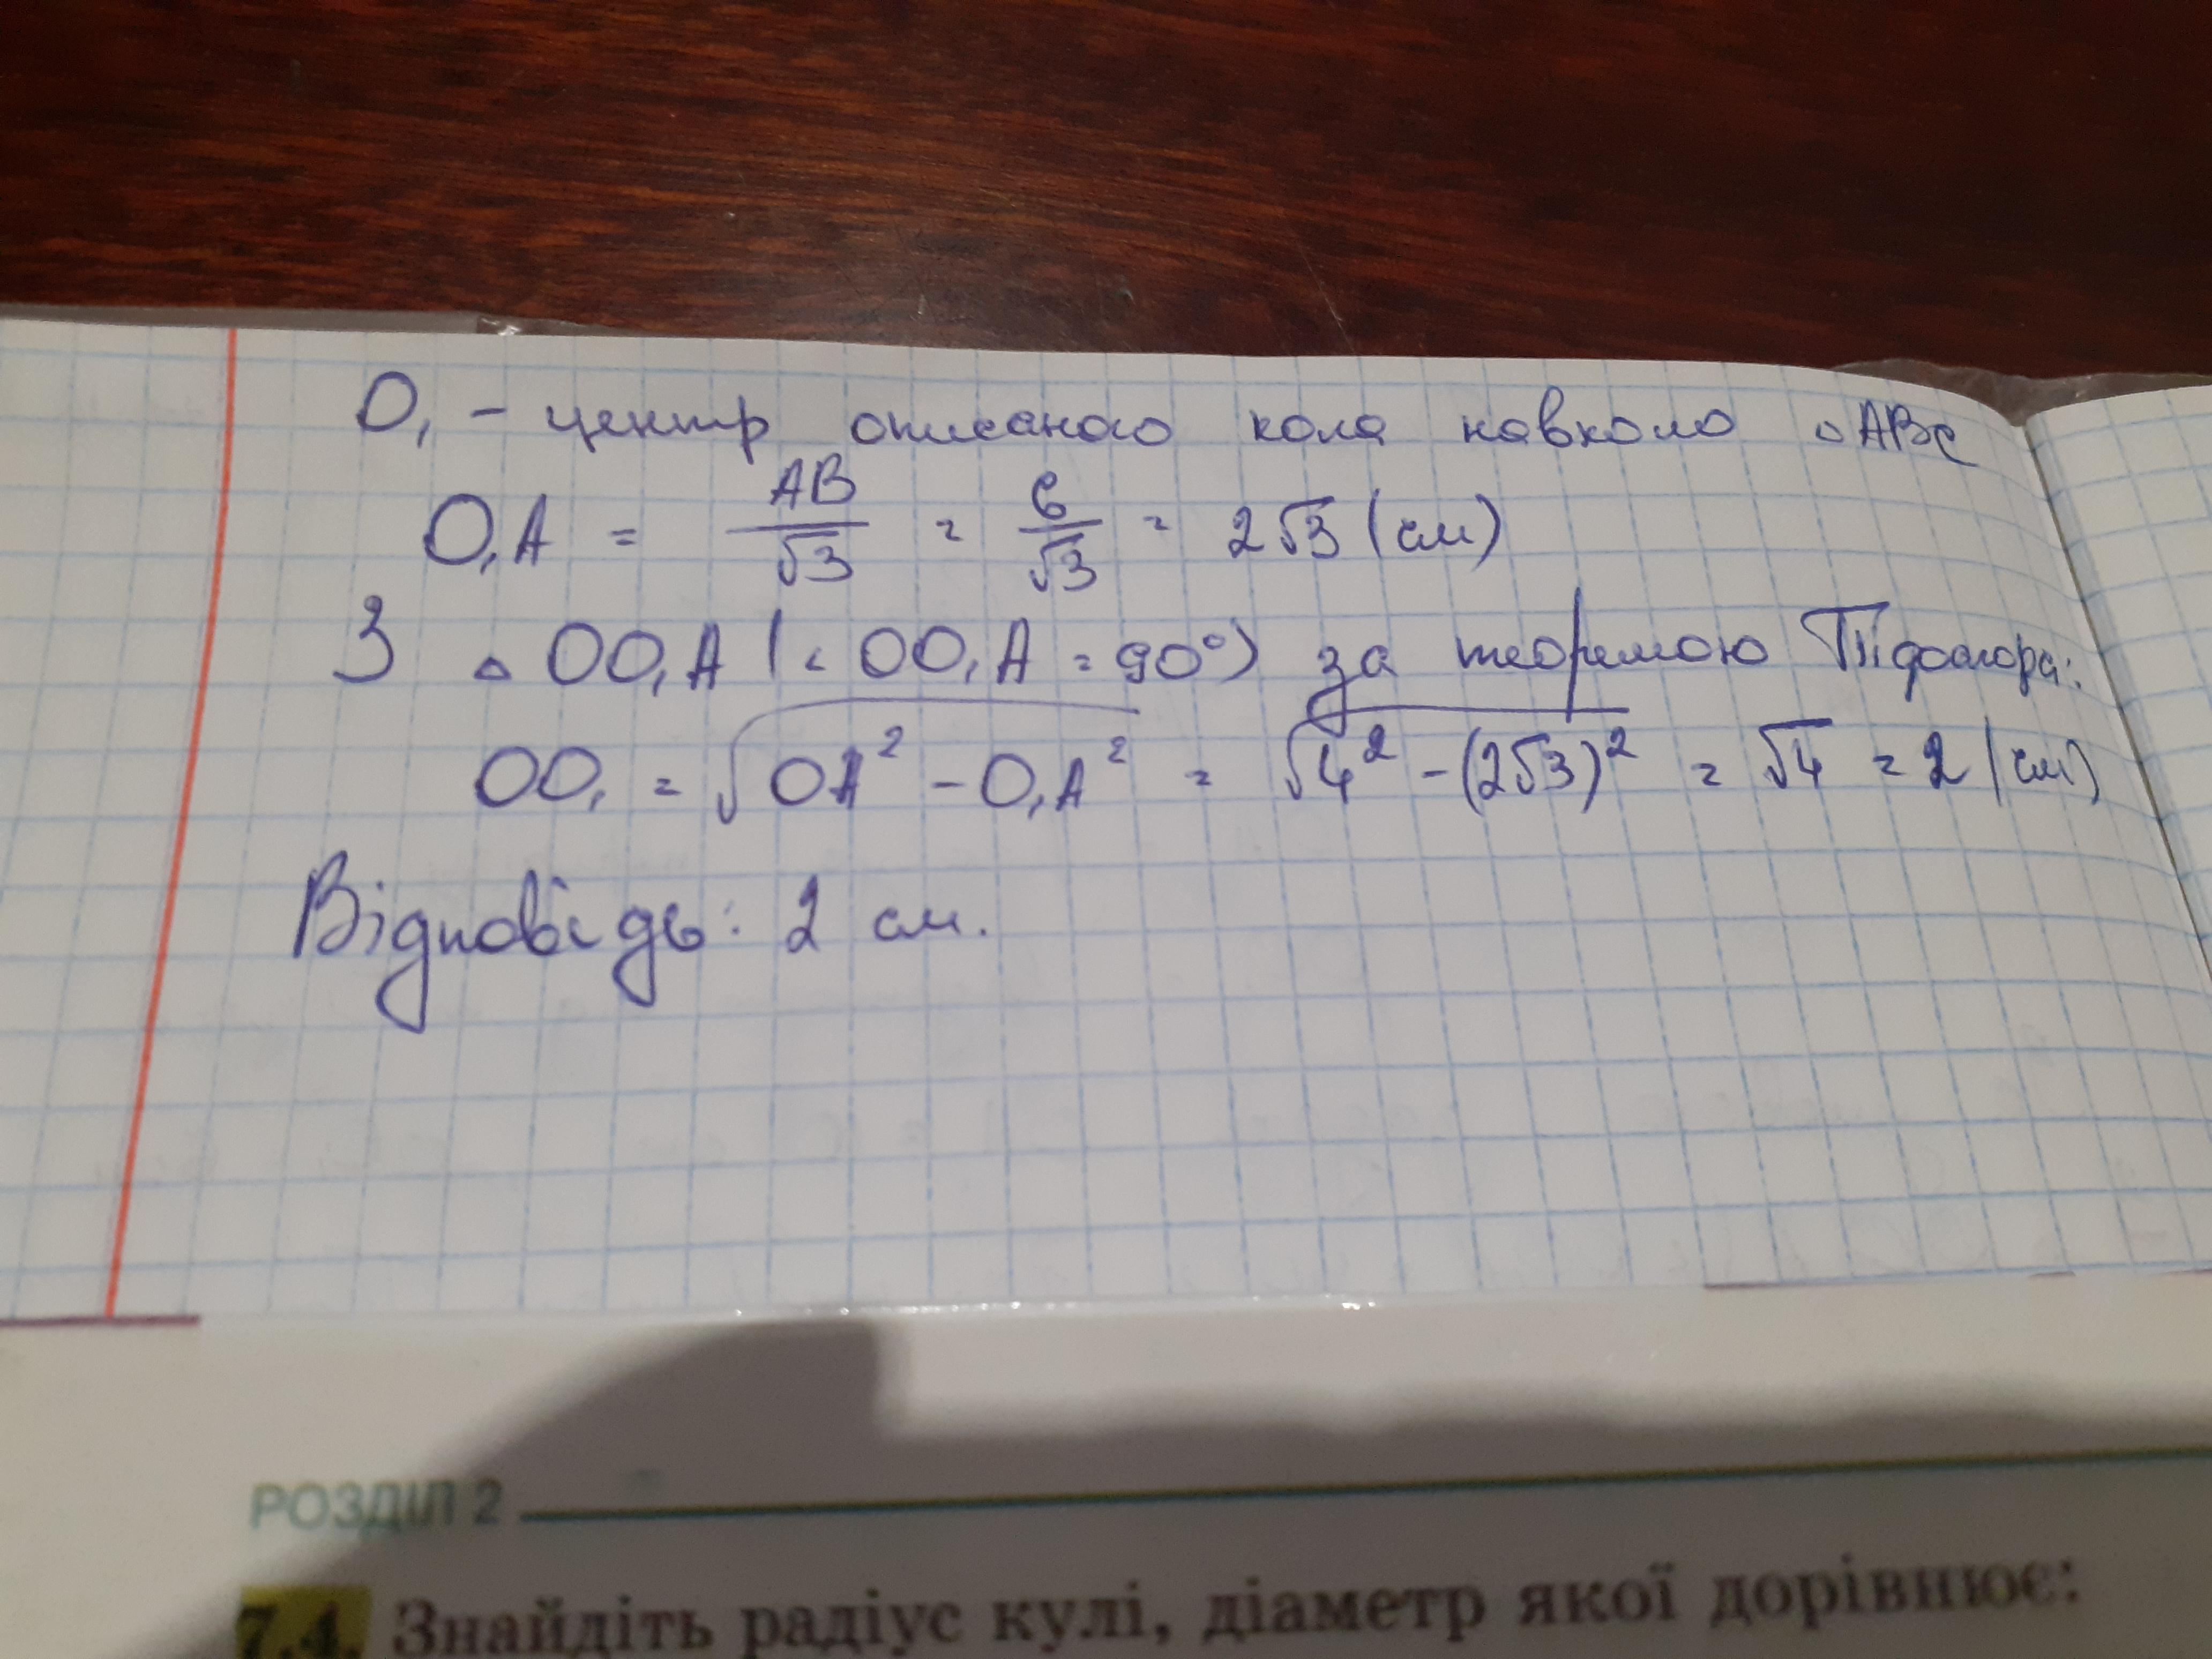 O₁ - центр описаного кола навколо △ABC
O₁A = AB/√3 = 6/√3 = 2√3 (см)
З △OO₁A (∠OO₁A = 90°) за теоремою Піфагора:
OO₁ = √(OA² - O₁A²) = √(4² - (2√3)²) = √4 = 2 (см)
Відповідь: 2 см.
РОЗДІЛ 2
7.4. Знайдіть радіус кулі, діаметр якої дорівнює: